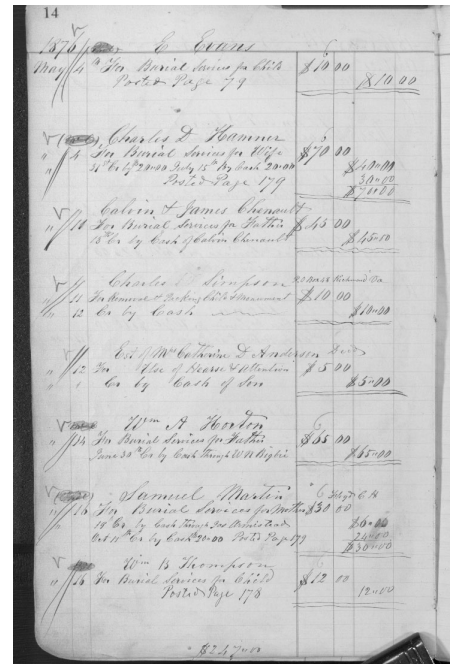 14
1876 E Evans
May 4th For Burial Services for Child $10 00
Posted Page 79 $10.00
Charles D Hamner
" 4 For Burial Services for Wife $70 00
Cr by 20.00 July 15th By Cash 20.00 $40.00
Posted Page 179 30.00
$70.00
Calvin & James Chenault
" 10 For Burial Services for Father $45 00
15th Cr by Cash of Calvin Chenault $45.00
Charles Simpson Richmond Va
" 11 For removal & Packing Child & Monument $10 00
" 12 Cr by Cash $10.00
Est of Mrs Catherine D Anderson Decd
" 12 For Use of Hearse & Attention $5 00
" Cr by Cash of Son $5.00
Wm A Horton
" 14 For Burial Services for Father $65 00
June 30th Cr by Cash Through W N $65.00
Samuel Martin C H
" 16 For Burial Services for Mother $30 00
18 Cr by Cash Through Jas Armistead $6.00
Oct Cr by Cash 20.00 Posted Page 179 24.00
$30.00
Wm B Thompson
" 16 For Burial Services for Child $12 00
Posted Page 178 12.00
$247.00